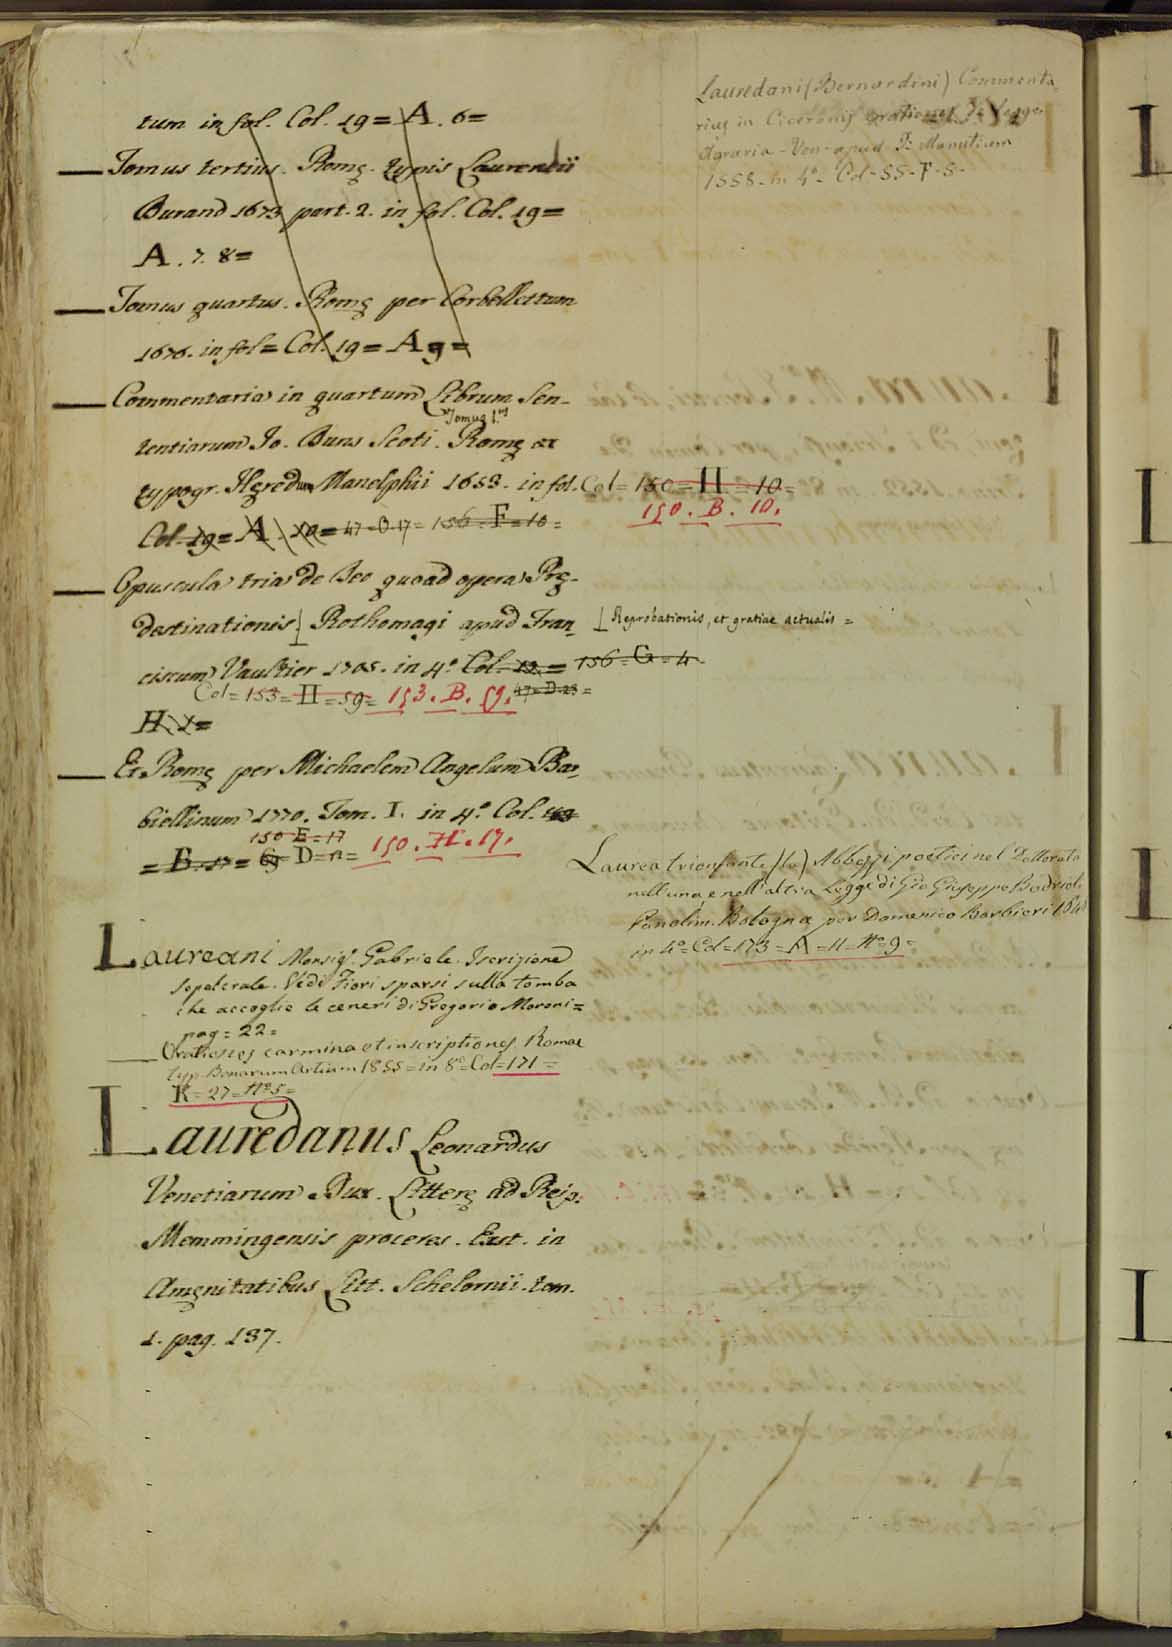 tum in fol. Col. 19 = A. 6 =
— Tomus tertius. Romę. typis Laurentii
Durand 1673 part. 2. in fol. Col. 19 =
A. 7. 8 =
— Tomus quartus. Romę per Corbellettum
1676. in fol = Col. 19 = A 9 =
— Commentaria in quartum Librum Sen-
Tomus I.us
tentiarum Jo. Duns Scoti. Romę ex
typogr. Hęredum Manelphii 1653. in fol. Col = 150 = H = 10 =
150. B. 10.
Col. 19 = A. 10 = 47 = O 17 = 156 = F = 10 =
— Opuscula tria de Deo quoad opera Prę-
destinationis Rothomagi apud Fran- Reprobationis, et gratiae actualis =
ciscum Vaultier 1705. in 4.º Col. 12 = 156 = G = 4.
Col = 153 = H = 59 = 153. B. 59. 47 = D 23 =
H. 1 =
— Et Romę per Michaelem Angelum Bar-
biellinum 1770. Tom. I. in 4.º Col.
150 E = 17 150. H. 17.
= B. 17 = D = 11 =
Laureani Monsig.r Gabriele. Iscrizione
sepolcrale. Vedi Fiori sparsi sulla tomba
che accoglie le ceneri di Gregorio Moroni =
pag = 22 =
— Orationes carmina et inscriptiones. Romae
typ. Bonarum Artium 1855 = in 8º = Col = 171 =
K = 27 = Nº 5 =
Lauredanus Leonardus
Venetiarum Dux. Litterę ad Reip.
Memmingensis proceres. Exst. in
Amęnitatibus Litt. Schelornii. tom.
1. pag. 137.
Lauredani (Bernardini) Commenta-
rius in Ciceronis orationes De Legge
Agraria - Ven - apud P. Manutium
1558 - in 4º - Col - 55 - F - 5 -
Laurea trionfante (la) Abbozzi poetici nel Dottorato
nell'una e nell'altra Legge di Gio Giuseppe
Panolini. Bologna per Domenico Barbieri
in 4º = Col = 173 = A = 11 = Nº 9 =